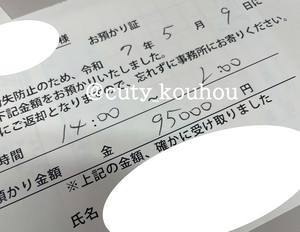 様 お預かり証
紛失防止のため、令和 7年 5月 9日に
下記金額をお預かりいたしました。
にご返却となりますので、忘れずに事務所にお寄りください。
時間 14:00 ～ :00
預かり金額 金 95000 円
※上記の金額、確かに受け取りました
氏名
@cuty_kouhou